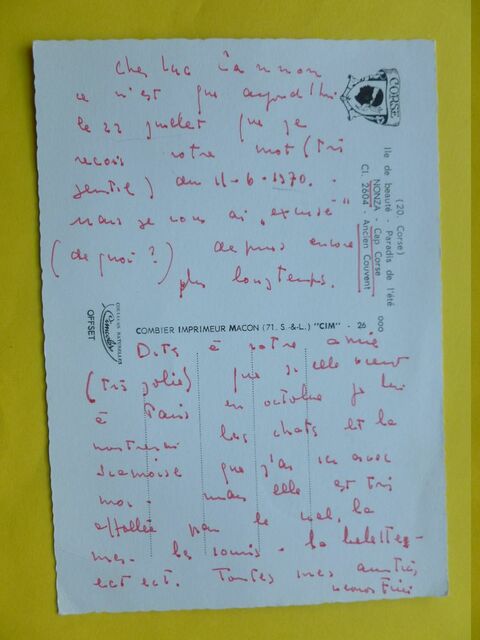 Cher Luc Lannon
ce n'est que aujourd'hui
le 22 juillet que je
reçois votre mot (très
gentil) du 11-6-1970.-
mais je vous ai "excusé"
(de quoi?) depuis encore
plus longtemps.
CORSE
(20. Corse)
Ile de beauté - Paradis de l'été
NONZA - Cap Corse
Cl. 2604 - Ancien Couvent
COMBIER IMPRIMEUR MACON (71. S.-&-L.) "CIM" - 26
000
COULEURS NATURELLES
Cimcolor
OFFSET
Dites à votre amie
(très jolie) que si elle vient
à Paris en octobre je lui
montrerai les chats et la
siamoise que j'ai ici avec
moi - mais elle est très
affolée par le la
mer - les souris - la
ect ect. Toutes mes